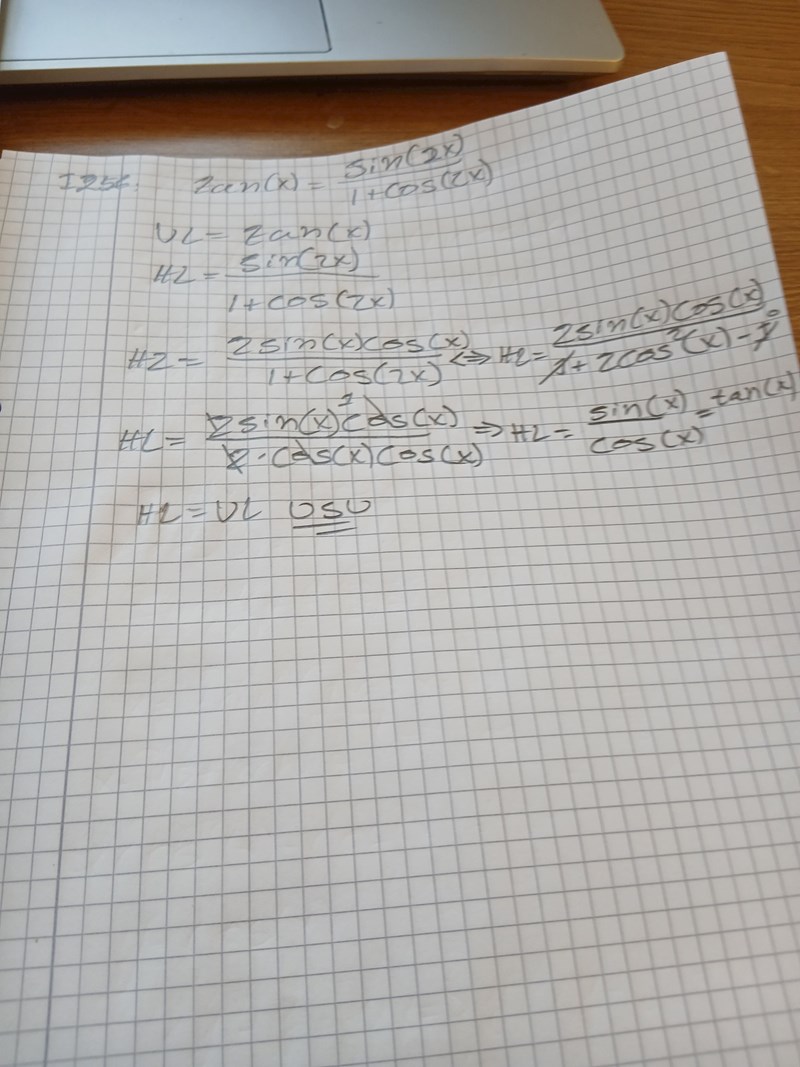 tan(x) = sin(2x) / 1+cos(2x)
VL = tan(x)
HL = sin(2x) / 1+cos(2x)
HL = 2sin(x)cos(x) / 1+cos(2x) ⇔ HL = 2sin(x)cos(x) / 1+2cos²(x)-1
HL = 2sin(x)cos(x) / 2·cos(x)cos(x) ⇒ HL = sin(x) / cos(x) = tan(x)
HL = VL VSV